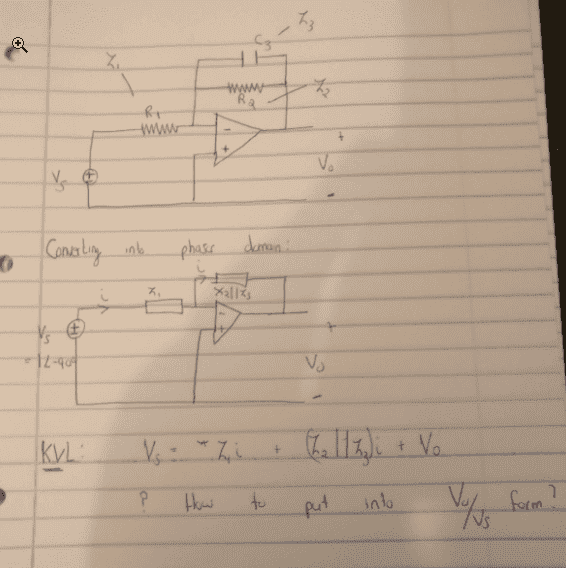 C3 Z3
Z1
R2 Z2
R1
- +
+ Vo
Vs ±
-
Converting into phasor domain:
i
i Z1 Z2||Z3
-
Vs ± + +
= 1∠-90° Vo
-
KVL: Vs = Z1 i + (Z2||Z3)i + Vo
? How to put into Vo/Vs form?